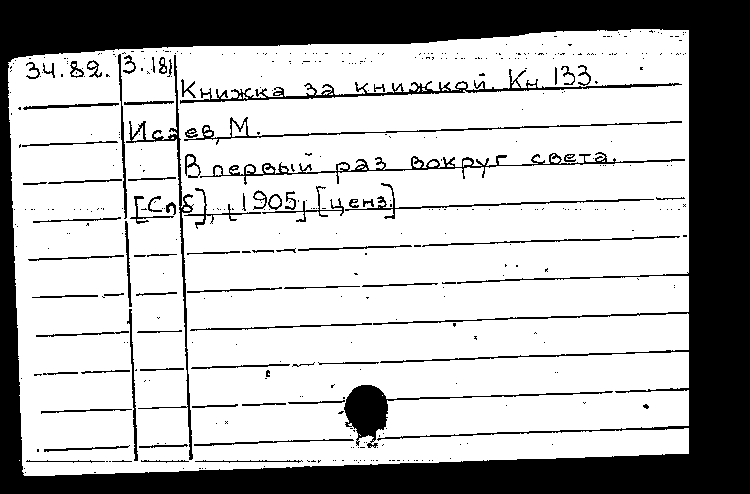 34.82. 3.181
Книжка за книжкой. Кн. 133.
Исаев, М.
В первый раз вокруг света.
[Спб], [1905] [ценз.]